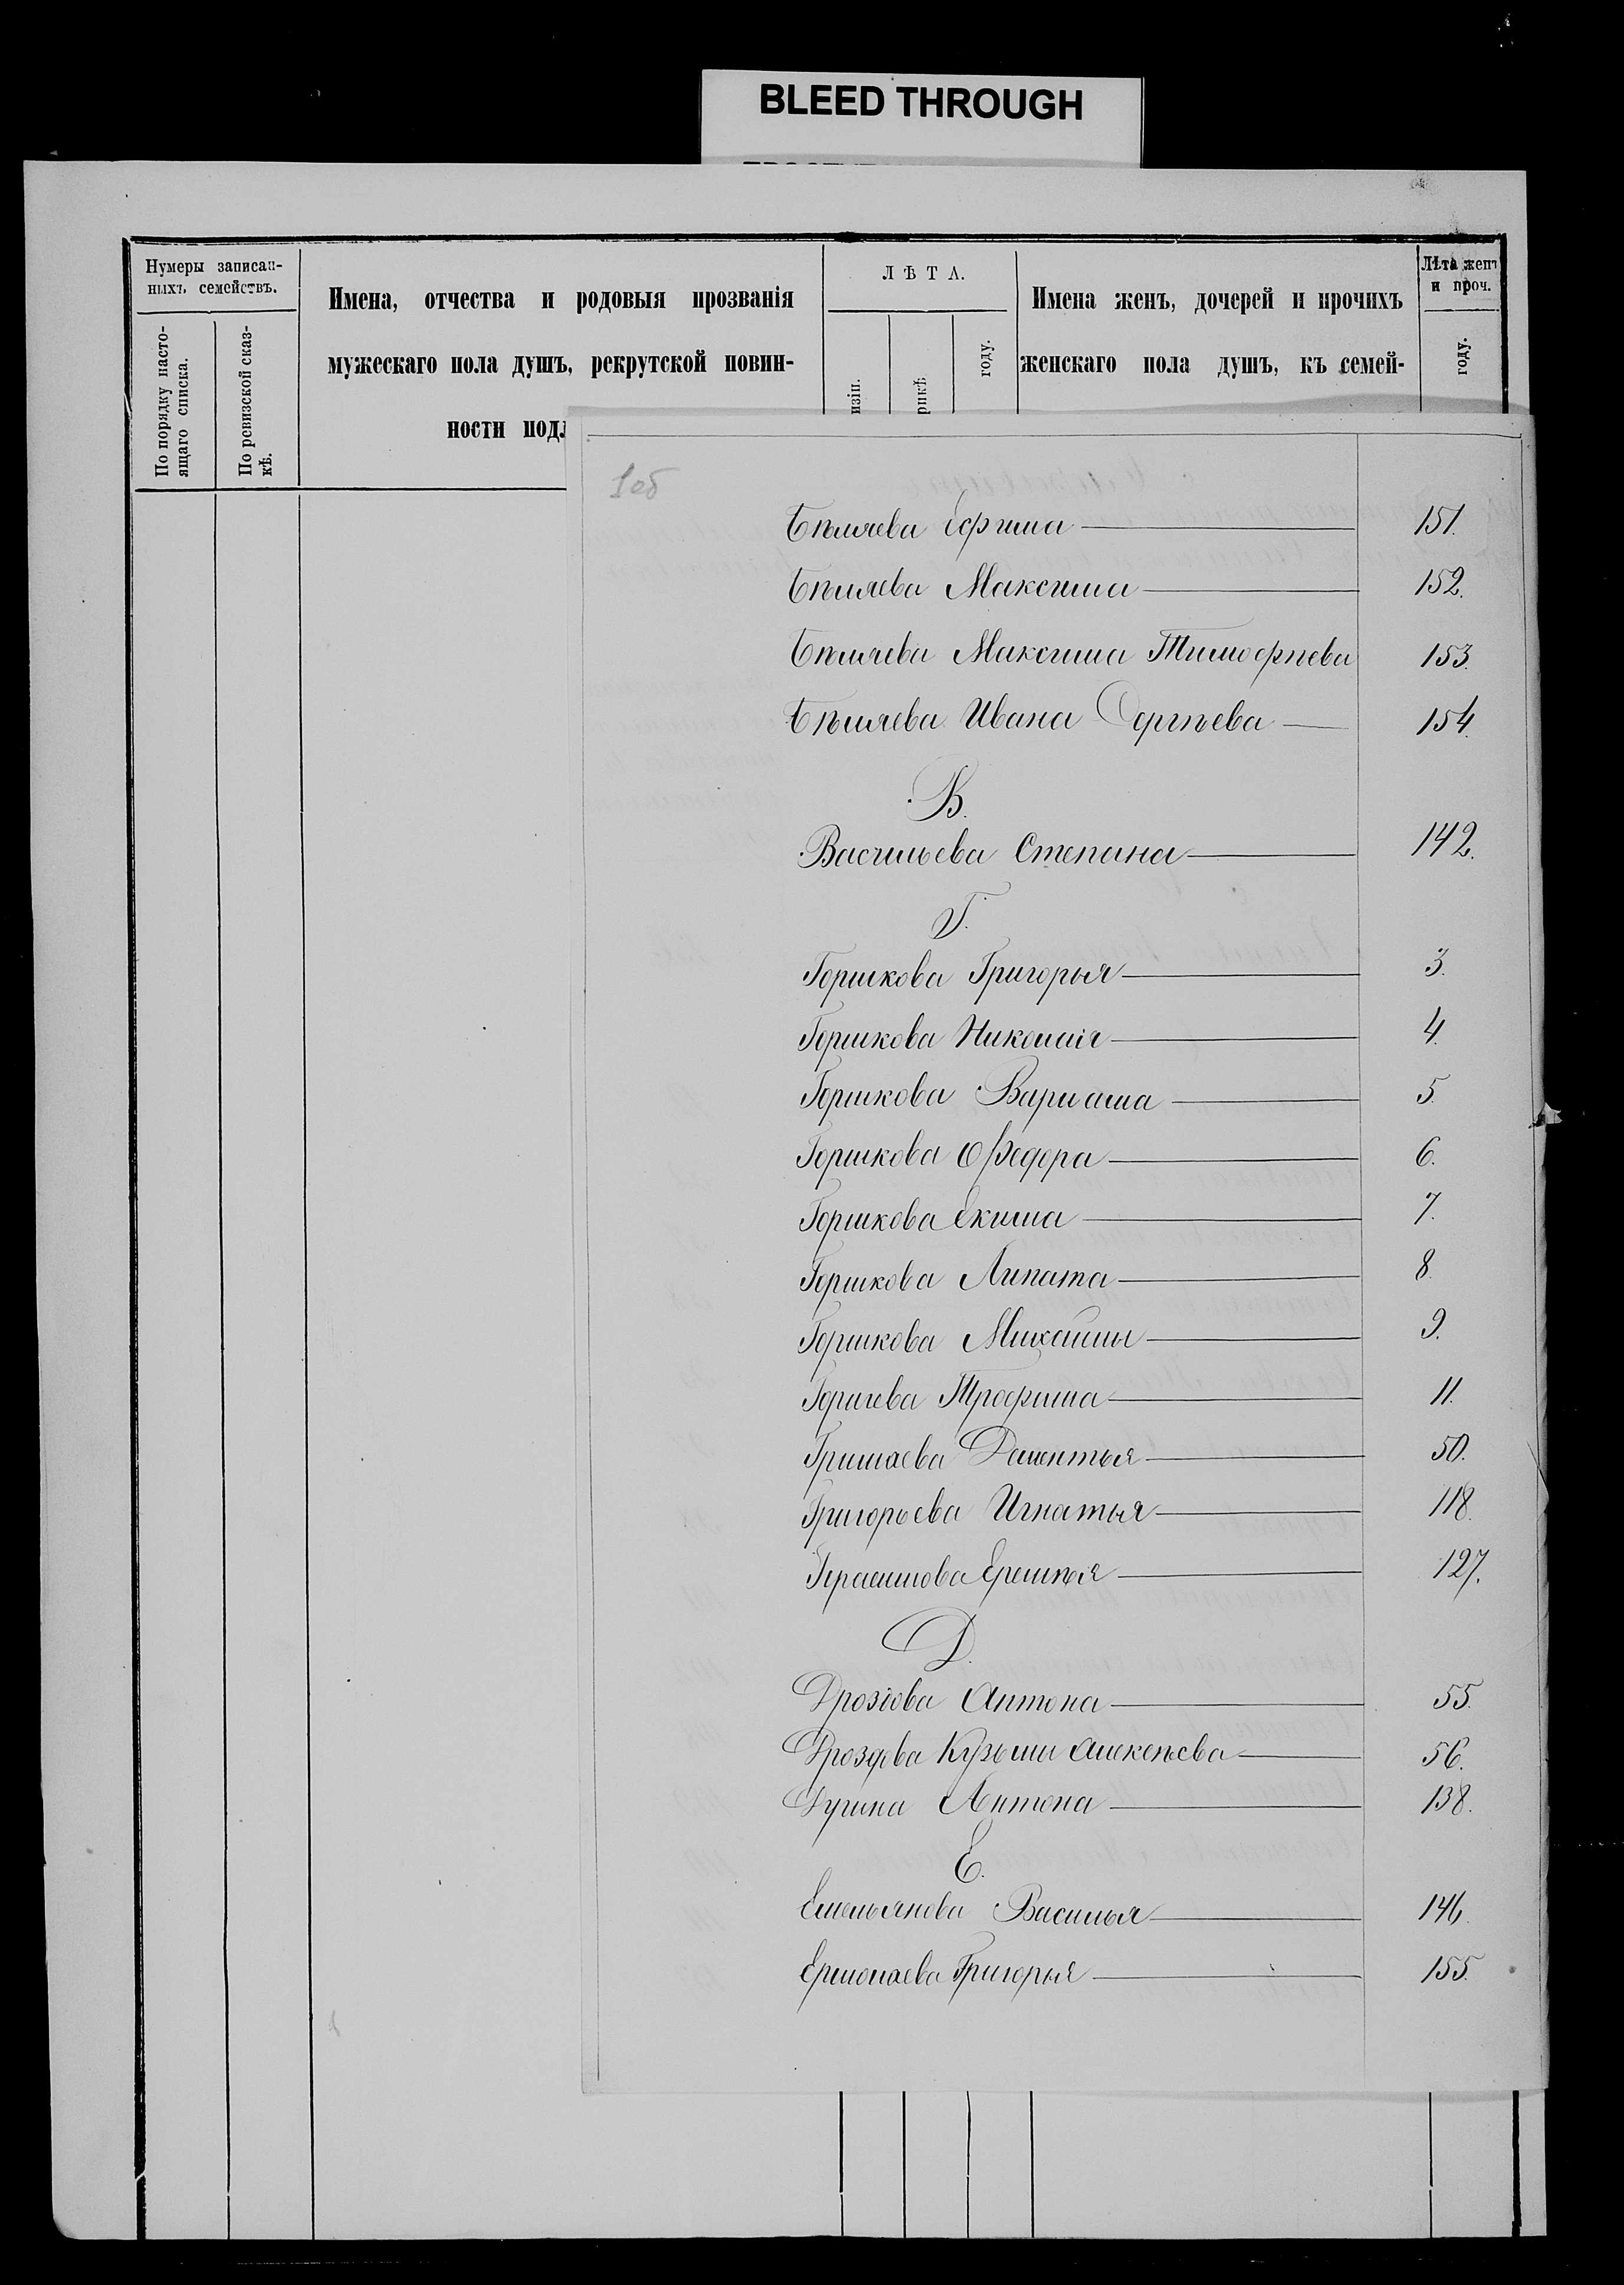 BLEED THROUGH
Нумеры записан-
ныхъ семействъ.
По порядку насто-
ящаго списка.
По ревизской сказ-
кѣ.
Имена, отчества и родовыя прозванія
мужескаго пола душъ, рекрутской повин-
ности подл
ЛѢТА.
изіи.
рикѣ
году.
Имена женъ, дочерей и прочихъ
женскаго пола душъ, къ семей-
Лѣта женъ
и проч.
году.
1об
Бѣляева Ефима 151.
Бѣляева Максима 152.
Бѣляева Максима Тимофѣева 153.
Бѣляева Ивана Сергѣева 154.
В.
Васильева Степана 142.
Г.
Горшкова Григорья 3.
Горшкова Николая 4.
Горшкова Варлама 5.
Горшкова Федора 6.
Горшкова Екима 7.
Горшкова Липата 8.
Горшкова Михайлы 9.
Горячева Трофима 11.
Гришаева Дементья 50.
Григорьева Игнатья 118.
Герасимова Еремѣя 127.
Д.
Дроздова Антона 55.
Дроздова Кузьмы Алексѣева 56.
Антона 138.
Е.
Емельянова Василья 146.
Ермолаева Григорья 155.